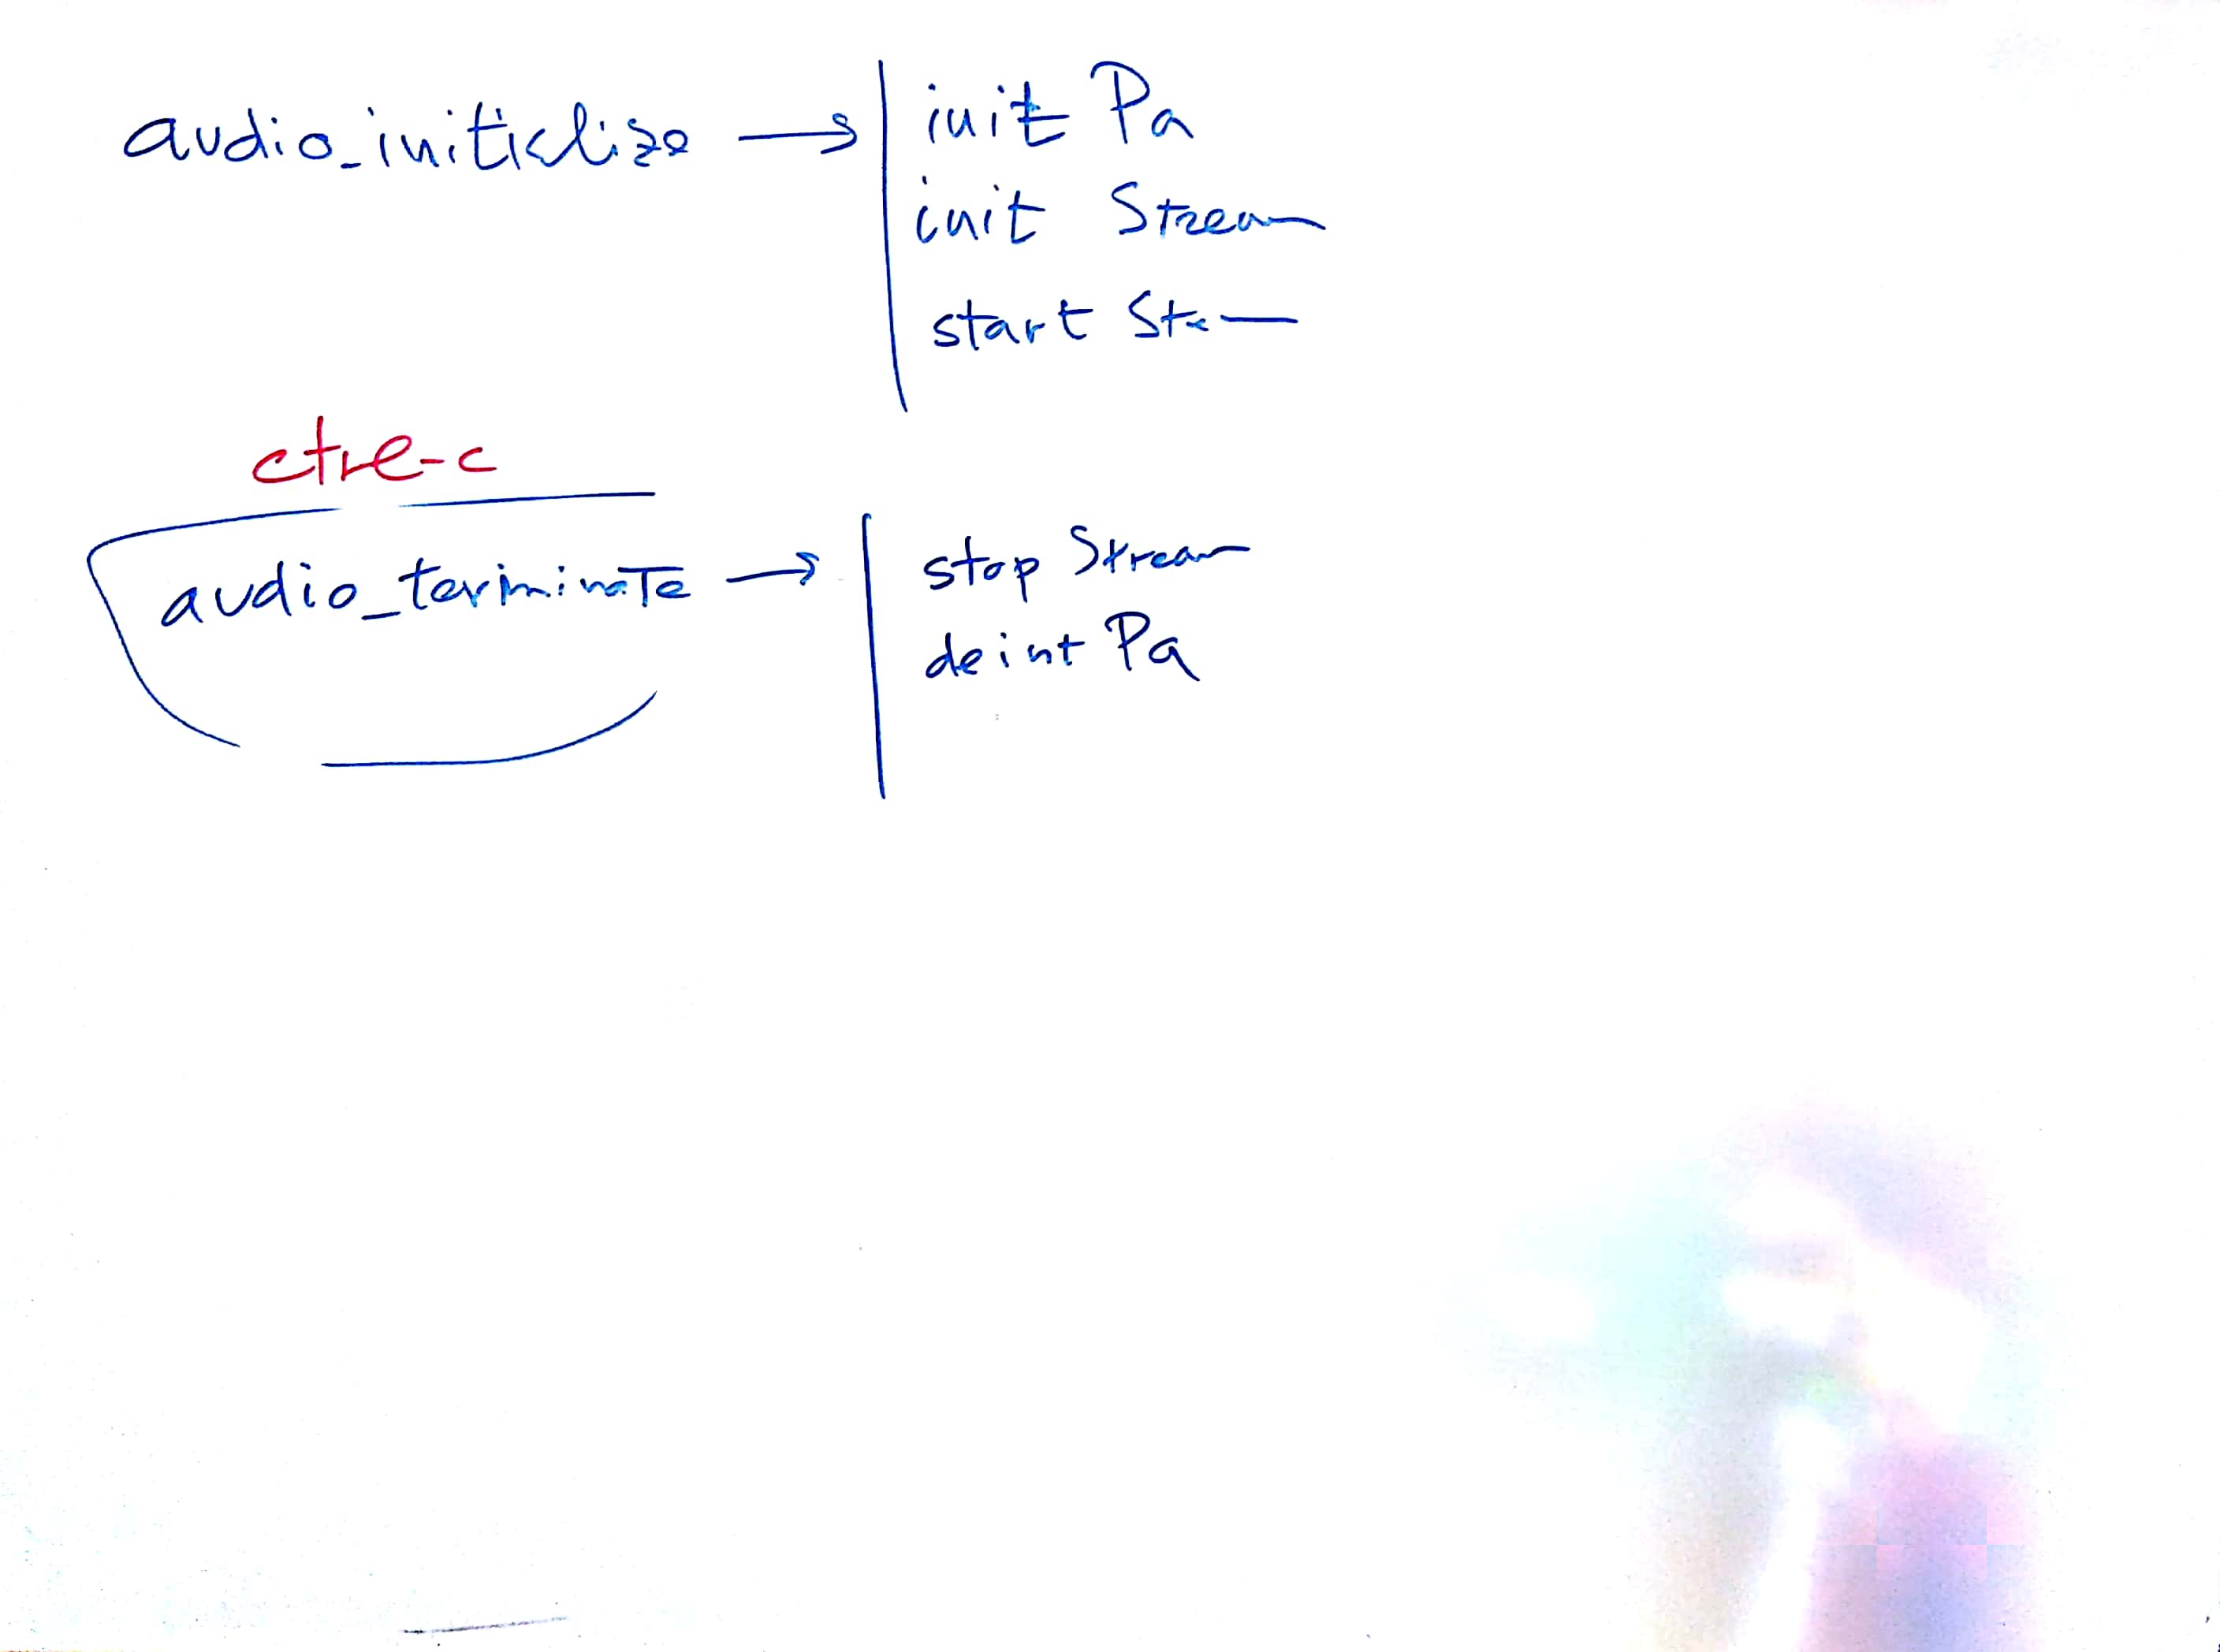 audio_initialize → init Pa
init Stream
start Stream
ctrl-c
audio_terminate → stop Stream
deint Pa